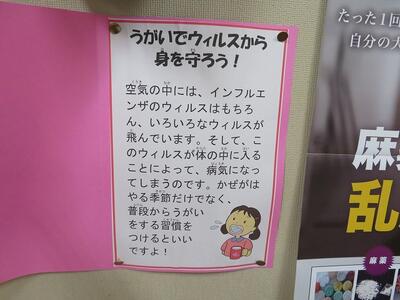 うがいでウィルスから
身を守ろう！
空気の中には、インフルエ
ンザのウィルスはもちろ
ん、いろいろなウィルスが
飛んでいます。そして、こ
のウィルスが体の中に入る
ことによって、病気になっ
てしまうのです。かぜがは
やる季節だけでなく、
普段からうがい
をする習慣を
つけるといい
ですよ！
たった1回
自分の大
麻
乱
麻薬